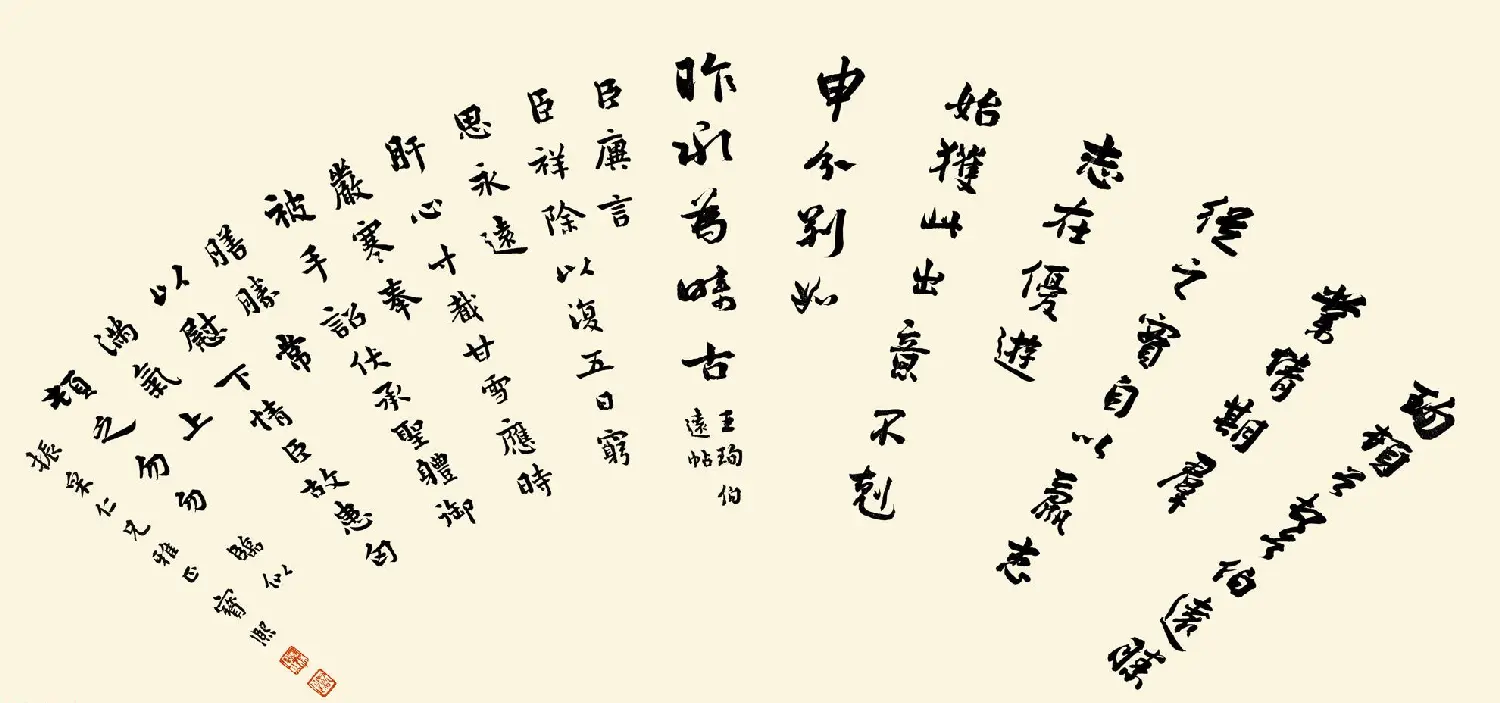 珣頓〻首〻伯遠勝
業情期羣
從之寳自以羸患
志在優遊
始獲此出意不剋
申分別如
昨永為疇古
王珣伯
遠帖
臣廙言
臣祥除以復五日窮
思永遠
肝心寸截甘雪應時
嚴寒奉
被手詔伏承聖體御
膳勝常
以慰下情臣故患匈
滿氣上
頓乏勿勿 臨似
振仁兄雅正 寶熙